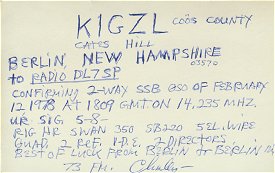 K1GZL COÖS COUNTY
CATES HILL
BERLIN, NEW HAMPSHIRE
03570
to RADIO DL7SP
CONFIRMING 2-WAY SSB QSO OF FEBRUARY
12 1978 AT 1809 GMT ON 14,235 MHZ.
UR SIG 5-8-
RIG HR SWAN 350 SB220 5EL. WIRE
QUAD, 2 REF. 1 D.E. 2 DIRECTORS
BEST OF LUCK FROM BERLIN to BERLIN
73 FM.